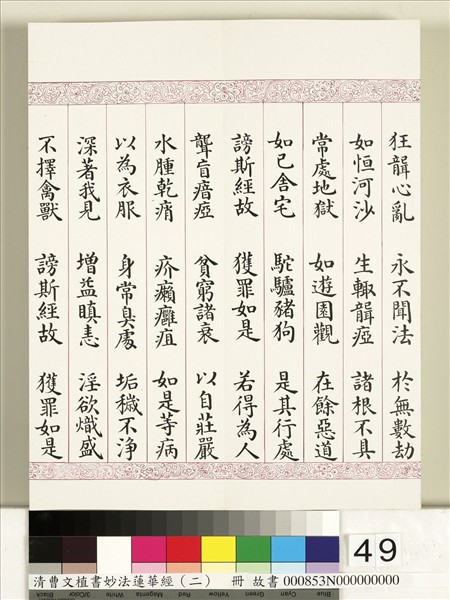 狂聾心亂 永不聞法 於無數劫
如恒河沙 生輒聾瘂 諸根不具
常處地獄 如遊園觀 在餘惡道
如己舍宅 駝驢豬狗 是其行處
謗斯經故 獲罪如是 若得為人
聾盲瘖瘂 貧窮諸衰 以自莊嚴
水腫乾痟 疥癩癰疽 如是等病
以為衣服 身常臭處 垢穢不淨
深著我見 增益瞋恚 淫欲熾盛
不擇禽獸 謗斯經故 獲罪如是
49
清曹文植書妙法蓮華經（二） 冊 故書 000853N000000000
Black 3/Color White Magenta Red Yellow Green Cyan Blue